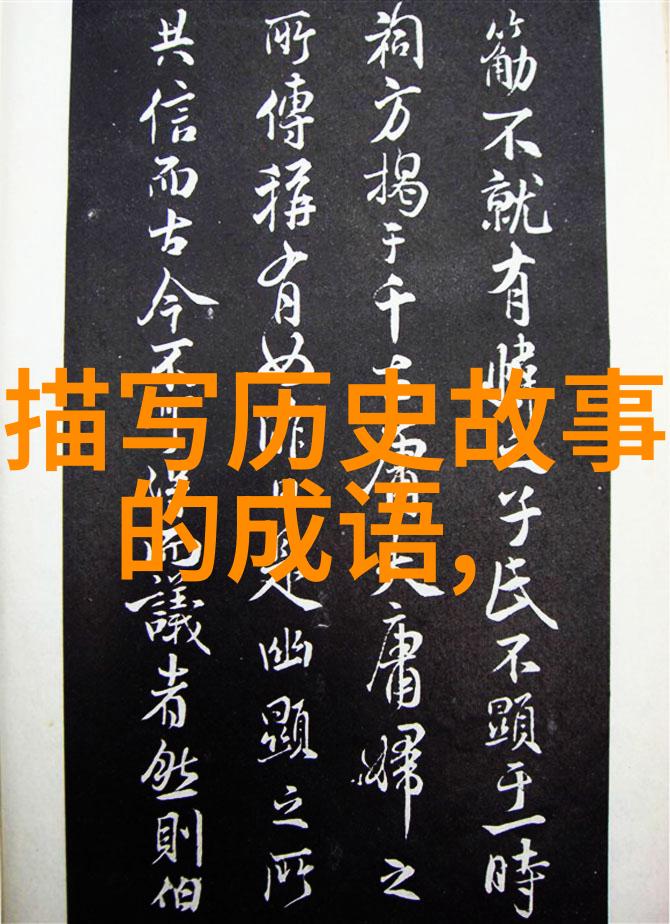 描写历史故事
的成语,
觔不就有
子氏不顯于一時
祠方揭于千
夫庸婦之
所傳稱有如昨日是幽顯之所
共信而古今不
議者然則伯